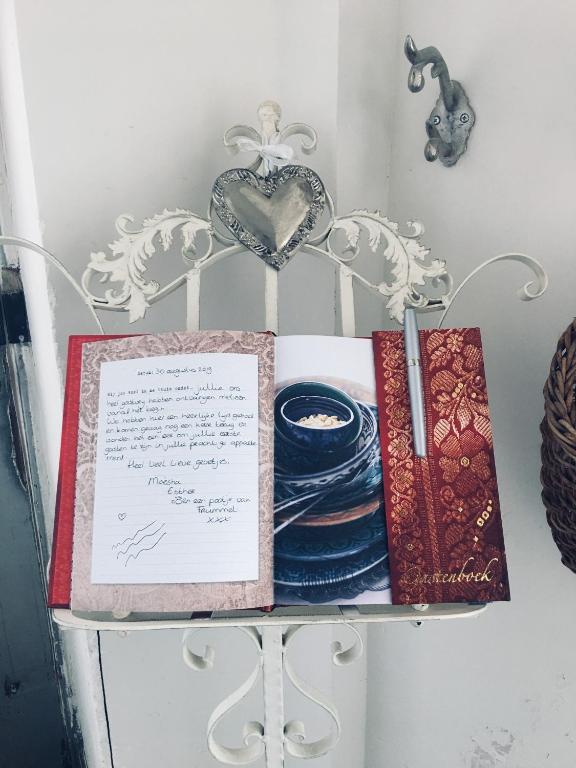 30 augustus 2019
jullie ons
heel gastvrij hebben ontvangen meteen
vanaf het begin.
We hebben hier een heerlijke tijd gehad
en komen graag nog een keer terug en
vonden het een eer om jullie eerste
gasten te zijn in jullie prachtige appartement
Heel veel lieve groetjes,
Moësha
Esther
een pootje van
Frummel
xxx
Gastenboek